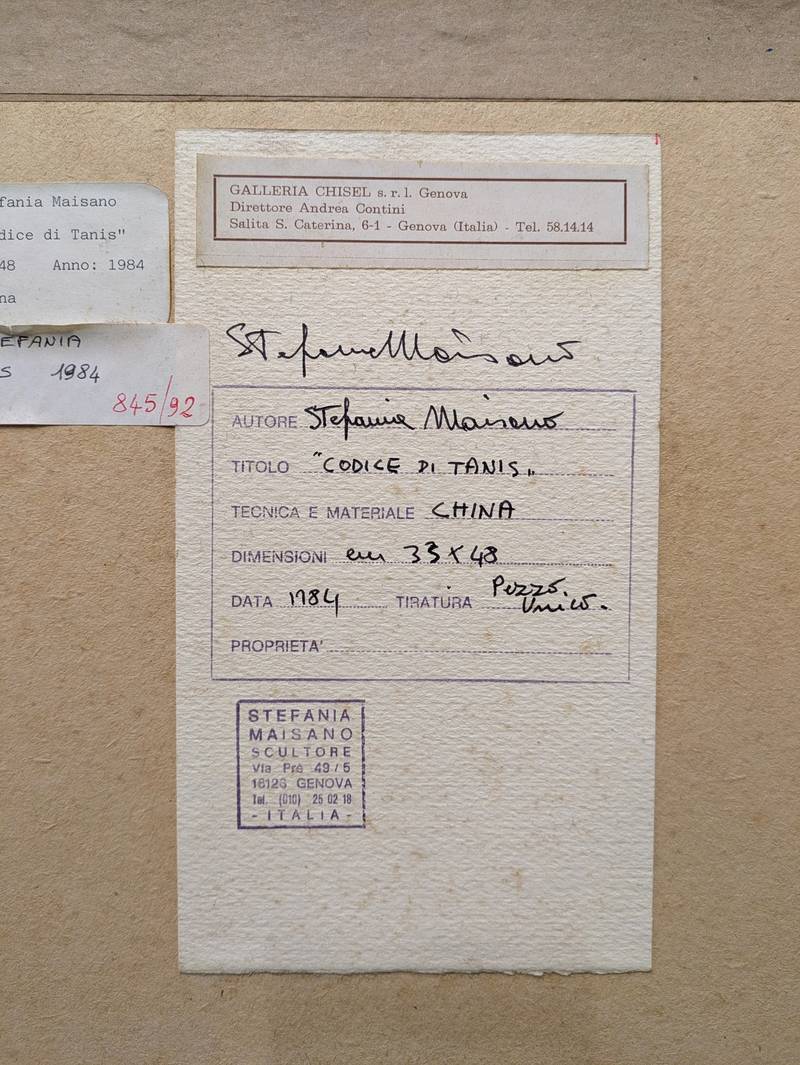 fania Maisano
dice di Tanis"
48 Anno: 1984
na
EFANIA
S 1984
845/92
GALLERIA CHISEL s.r.l. Genova
Direttore Andrea Contini
Salita S. Caterina, 6-1 - Genova (Italia) - Tel. 58.14.14
Stefania Maisano
AUTORE Stefania Maisano
TITOLO "CODICE DI TANIS"
TECNICA E MATERIALE CHINA
DIMENSIONI cm 33 X 48
DATA 1984 TIRATURA Pezzo
Unico.
PROPRIETA'
STEFANIA
MAISANO
SCULTORE
Via Prè 49/5
16126 GENOVA
Tel. (010) 25 02 18
- ITALIA -